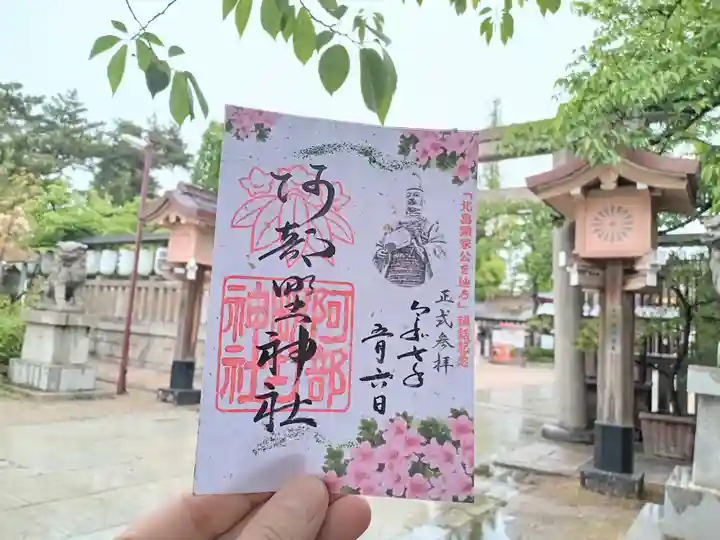 「北畠顕家公を辿る」講話記念
正式参拝
令和七年
五月六日
阿部野神社
阿部野神社